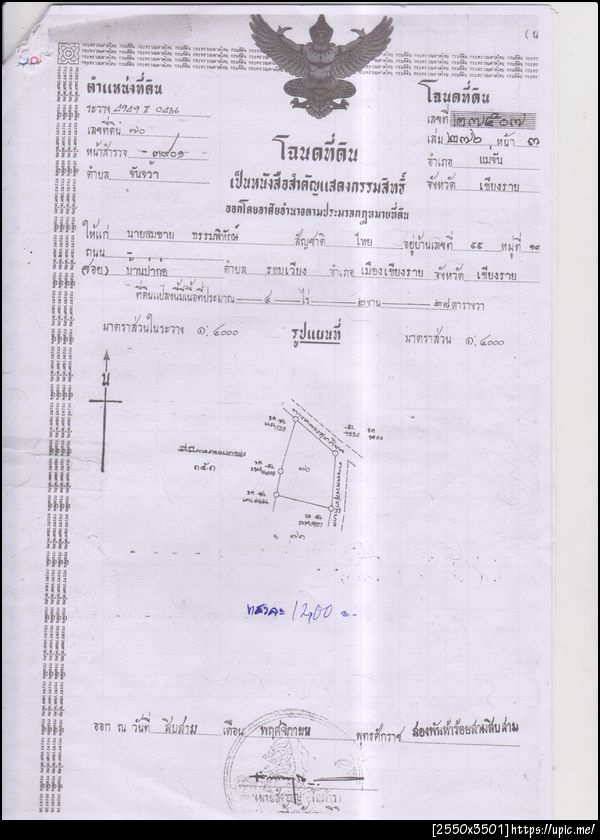 ( น
ตำแหน่งที่ดิน
โฉนดที่ดิน
ระวาง 4949 II 0436
เลขที่ ๒๗๕๐๗
เลขที่ดิน ๗๐
เล่ม ๒๗๖ หน้า ๗
หน้าสำรวจ ๓๙๐๑
โฉนดที่ดิน
อำเภอ แม่จัน
ตำบล จันจว้า
เป็นหนังสือสำคัญแสดงกรรมสิทธิ์
จังหวัด เชียงราย
ออกโดยอาศัยอำนาจตามประมวลกฎหมายที่ดิน
ให้แก่ นายสมชาย ธรรมพิทักษ์ สัญชาติ ไทย อยู่บ้านเลขที่ ๕๕ หมู่ที่
ถนน
(ซอย) บ้านป่าก่อ ตำบล รอบเวียง อำเภอ เมืองเชียงราย จังหวัด เชียงราย
ที่ดินแปลงนี้มีเนื้อที่ประมาณ ๔ ไร่ ๒ งาน ๒๙ ตารางวา
มาตราส่วนในระวาง ๑:๔๐๐๐
รูปแผนที่
มาตราส่วน ๑:๔๐๐๐
น
๗๐
๑๕๑
๗๓
1,200
ออก ณ วันที่ สิบสาม เดือน พฤศจิกายน พุทธศักราช สองพันห้าร้อยสามสิบสาม
[2550x3501]https://upic.me/